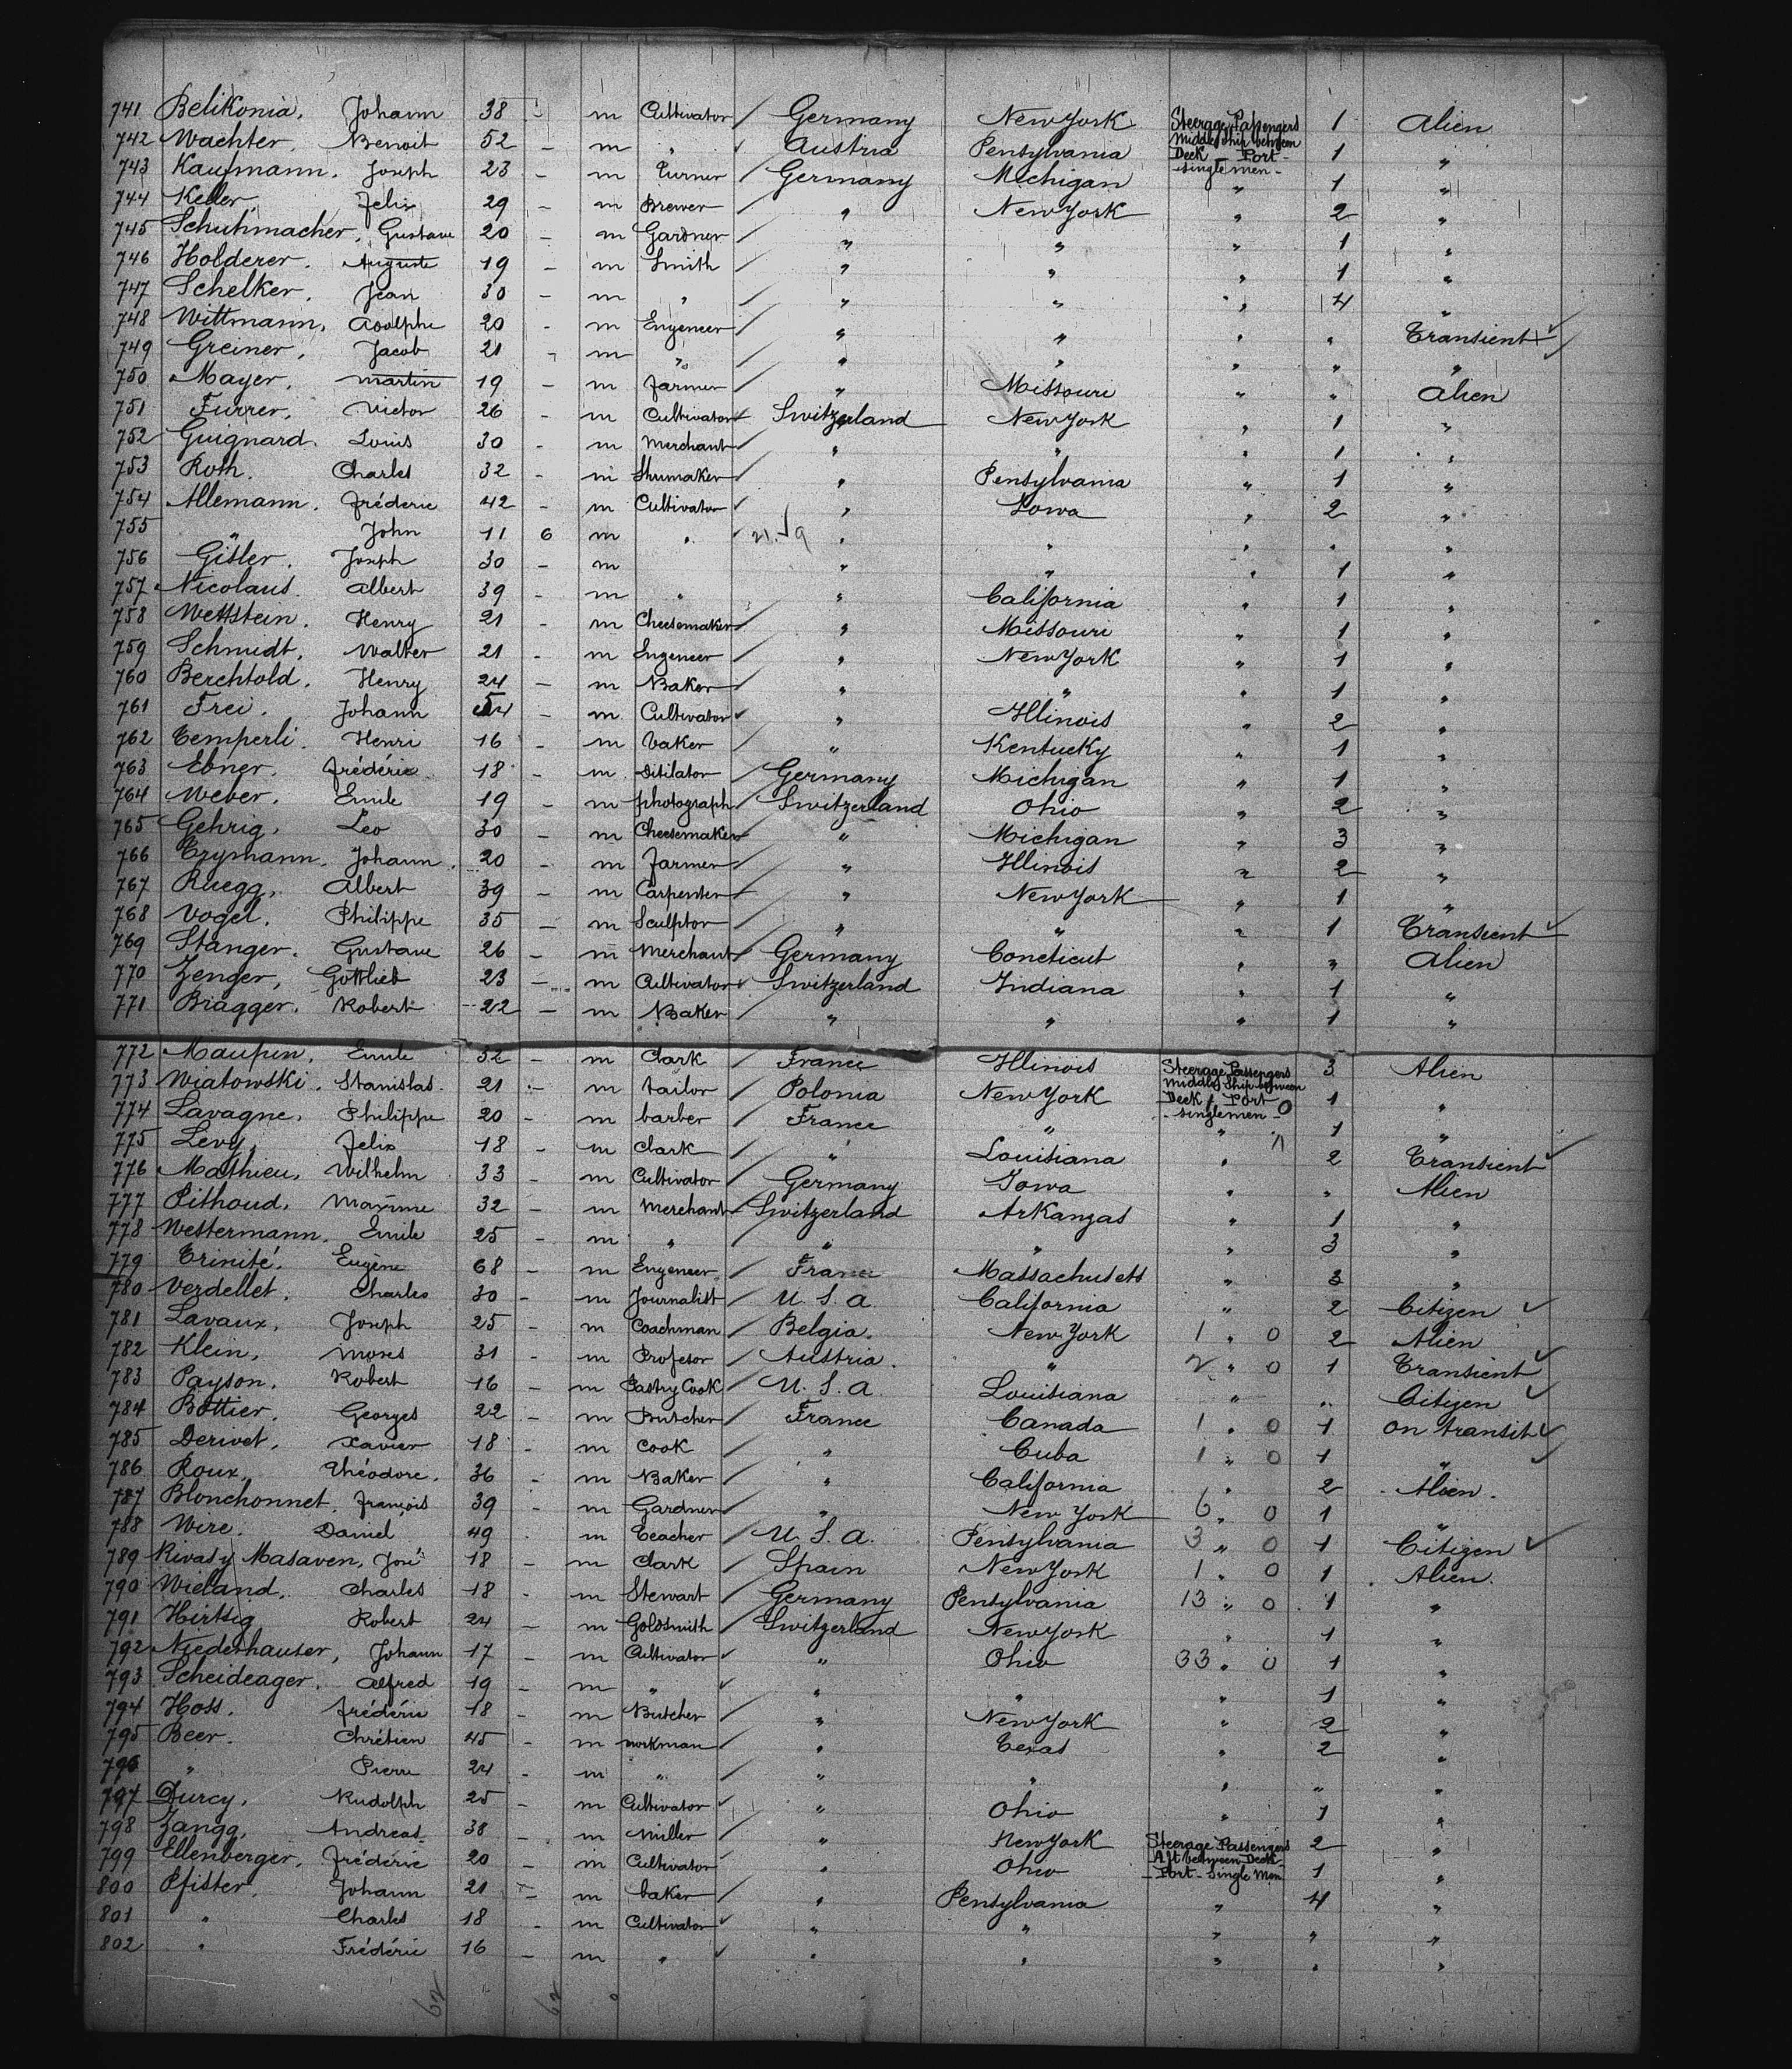 741 Belikonia, Johann 38 - m Cultivator Germany New York Steerage Passengers Middle Ship between Deck - Port - single men - 1 Alien
742 Wachter, Benoit 52 - m " Austria Pensylvania 1 "
743 Kaufmann, Joseph 23 - m Turner Germany Michigan " 1 "
744 Keller, Felix 29 - m Brewer " New York " 2 "
745 Schuhmacher, Gustave 20 - m Gardner " " " 1 "
746 Holderer, Auguste 19 - m Smith " " " 1 "
747 Schelker, Jean 30 - m " " " " 4 "
748 Wittmann, Adolphe 20 - m Engeneer " " " " Transient
749 Greiner, Jacob 21 - m " " " " " "
750 Mayer, Martin 19 - m Farmer " Missouri " " Alien
751 Furrer, Victor 26 - m Cultivator Switzerland New York " 1 "
752 Guignard, Louis 30 - m Merchant " " " 1 "
753 Roth, Charles 32 - m Shumaker " Pensylvania " 1 "
754 Allemann, Fréderic 42 - m Cultivator " Iowa " 2 "
755 " John 11 6 m " " " " " "
756 Gisler, Joseph 30 - m " " " 1 "
757 Nicolaus, Albert 39 - m " " California " 1 "
758 Wettstein, Henry 21 - m Cheesemaker " Missouri " 1 "
759 Schmidt, Walter 21 - m Engeneer " New York " 1 "
760 Berchtold, Henry 24 - m Baker " " " 1 "
761 Frei, Johann 54 - m Cultivator " Illinois " 2 "
762 Temperli, Henri 16 - m baker " Kentucky " 1 "
763 Ebner, Frédéric 18 - m Ditilator Germany Michigan " 1 "
764 Weber, Emile 19 - m photograph Switzerland Ohio " 2 "
765 Gehrig, Leo 30 - m Cheesemaker " Michigan " 3 "
766 Johann 20 - m Farmer " Illinois " 2 "
767 Ruegg, Albert 39 - m Carpenter " New York " 1 "
768 Vogel, Philippe 35 - m Sculptor " " " 1 Transient
769 Stanger, Gustave 26 - m Merchant Germany Coneticut " " Alien
770 Zenger, Gottlieb 23 - m Cultivator Switzerland Indiana " 1 "
771 Brägger, Robert 22 - m Baker " " " 1 "
772 Maupin, Emile 32 - m Clark France Illinois Steerage Passengers Middle Ship between Deck Port - single men - 3 Alien
773 Wiatowski, Stanislas 21 - m tailor Polonia New York 0 1 "
774 Lavagne, Philippe 20 - m barber France " " 1 "
775 Levy, Felix 18 - m Clark " Louisiana " 2 Transient
776 Mathieu, Wilhelm 33 - m Cultivator Germany Iowa " " Alien
777 Pithoud, Maxime 32 - m Merchant Switzerland Arkangas " 1 "
778 Westermann, Emile 25 - m " " " " 3 "
779 Trinité, Eugène 68 - m Engeneer France Massachusets " 3 "
780 Verdellet, Charles 30 - m Journalist U. S. A. California " 2 Citizen
781 Lavaux, Joseph 25 - m Coachman Belgia New York 1 " 0 2 Alien
782 Klein, Moses 31 - m Profesor Austria " 2 " 0 1 Transient
783 Payson, Robert 16 - m Pastry Cook U. S. A Louisiana " " Citizen
784 Bottier, Georges 22 - m Butcher France Canada 1 " 0 1 on transit
785 Derivet, Xavier 18 - m Cook " Cuba 1 " 0 1 "
786 Roux, Théodore 36 - m Baker " California " 2 Alien
787 Blonchonnet, François 39 - m Gardner " New York 6 " 0 1 "
788 Wire, Daniel 49 - m Teacher U. S. A. Pensylvania 3 " 0 1 Citizen
789 Rivas y Masaven, José 18 - m Clark Spain New York 1 " 0 1 Alien
790 Wieland, Charles 18 - m Stewart Germany Pensylvania 13 " 0 1 "
791 Hirtsig Robert 24 - m Goldsmith Switzerland New York " 1 "
792 Niederhauser, Johann 17 - m Cultivator " Ohio 33 " 0 1 "
793 Scheideager, Alfred 19 - m " " " " 1 "
794 Hoss, Frédéric 18 - m Butcher " New York " 2 "
795 Beer, Chrétien 45 - m workman " Texas " 2 "
796 " Pierre 24 - m " " " " " "
797 Durcy, Rudolph 25 - m Cultivator " Ohio " 1 "
798 Zangg, Andreas 38 - m Miller " New York Steerage Passengers Aft between Deck - Port - Single Men 2 "
799 Ellenberger, Frédéric 20 - m Cultivator " Ohio 1 "
800 Pfister, Johann 21 - m baker " Pensylvania " 4 "
801 " Charles 18 - m Cultivator " " " " "
802 " Frédéric 16 - m " " " " " "
62 62